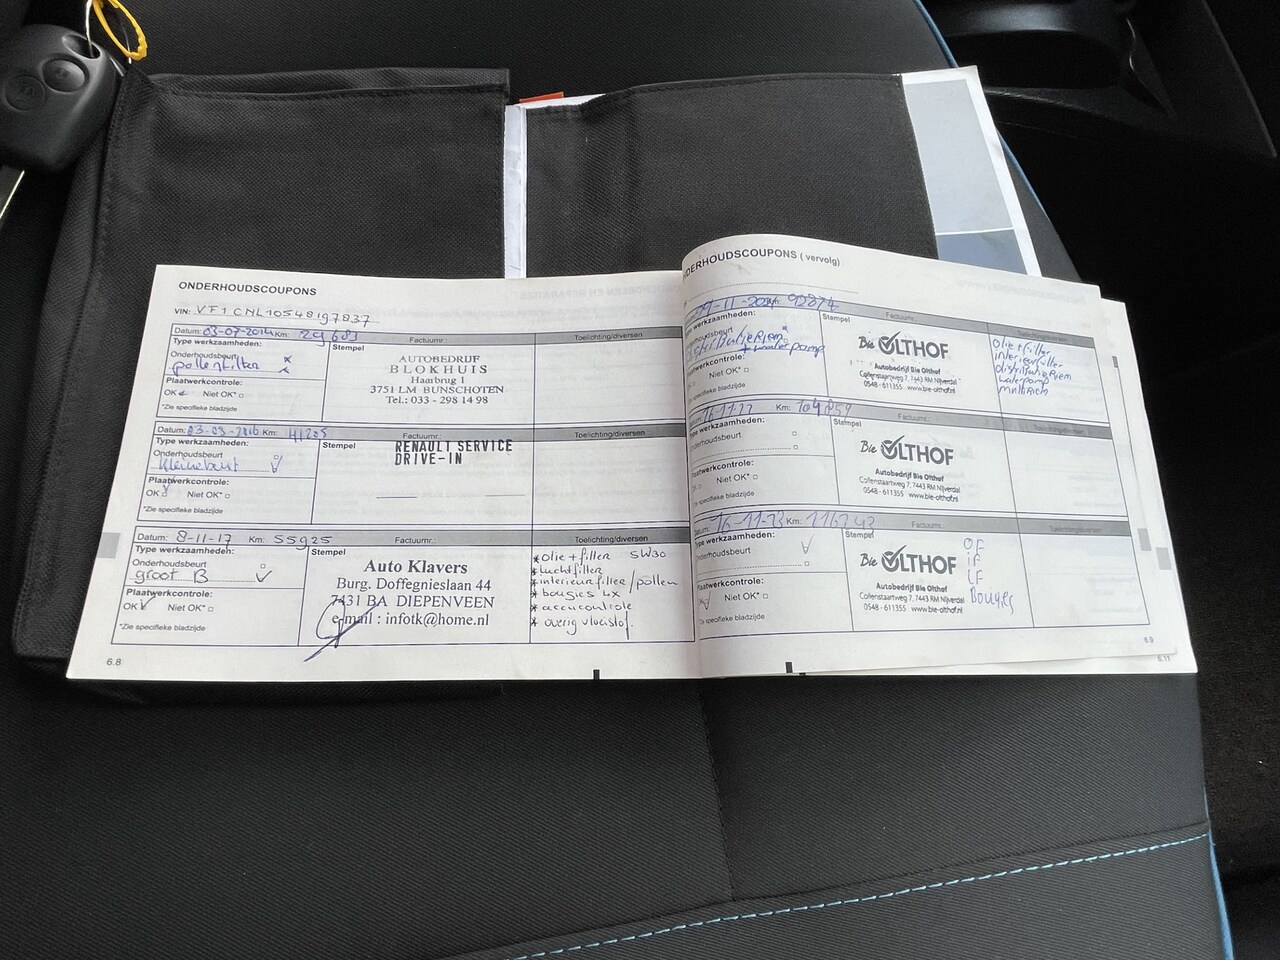 ONDERHOUDSCOUPONS
VIN: VF1CNL10548197837
Datum: 03-07-2014 Km: 29683
Type werkzaamheden:
Stempel
Toelichting/diversen
Onderhoudsbeurt
pollenfilter
Plaatwerkcontrole:
OK Niet OK*
*Zie specifieke bladzijde
AUTOBEDRIJF
BLOKHUIS
Haarbrug 1
3751 LM BUNSCHOTEN
Tel.: 033 - 298 14 98
Datum: 03-03-2016 Km: 41205 Factuurnr.: Toelichting/diversen
Type werkzaamheden:
Stempel
Onderhoudsbeurt
Kleinebeurt
Plaatwerkcontrole:
OK Niet OK*
*Zie specifieke bladzijde
RENAULT SERVICE
DRIVE-IN
Datum: 8-11-17 Km: 55925 Factuurnr.: Toelichting/diversen
Type werkzaamheden:
Stempel
Onderhoudsbeurt
groot B
Plaatwerkcontrole:
OK Niet OK*
*Zie specifieke bladzijde
Auto Klavers
Burg. Doffegnieslaan 44
7431 BA DIEPENVEEN
e-mail : infotk@home.nl
* olie + filter 5W30
* luchtfilter
* interieurfilter/pollen
* bougies 4x
* accucontrole
* overig vloeistof.
6.8
ONDERHOUDSCOUPONS ( vervolg)
92874
Type werkzaamheden:
Stempel
Onderhoudsbeurt
distributieriem
+ waterpomp
Plaatwerkcontrole:
Niet OK*
*Zie specifieke bladzijde
Bie OLTHOF
Autobedrijf Bie Olthof
Collenstaartweg 7, 7443 RM Nijverdal
0548 - 611355 www.bie-olthof.nl
olie + filter
interieurfilter
distributieriem
waterpomp
multiriem
Datum: 16-11-22 Km: 104859 Factuurnr.: Toelichting/diversen
Type werkzaamheden:
Stempel
Onderhoudsbeurt
Plaatwerkcontrole:
Niet OK*
*Zie specifieke bladzijde
Bie OLTHOF
Autobedrijf Bie Olthof
Collenstaartweg 7, 7443 RM Nijverdal
0548 - 611355 www.bie-olthof.nl
Datum: 16-11-23 Km: Factuurnr.: Toelichting/diversen
Type werkzaamheden:
Stempel
Onderhoudsbeurt
Plaatwerkcontrole:
Niet OK*
*Zie specifieke bladzijde
Bie OLTHOF
Autobedrijf Bie Olthof
Collenstaartweg 7, 7443 RM Nijverdal
0548 - 611355 www.bie-olthof.nl
OF
iF
LF
Bougies
6.9
6.11